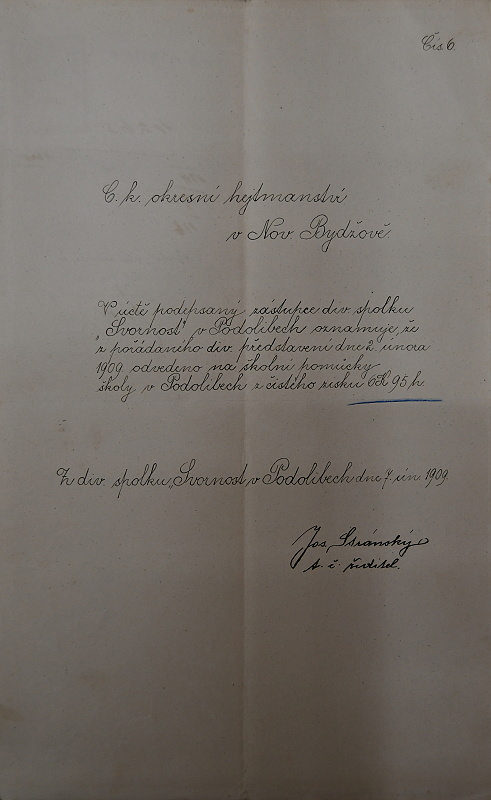 Čís. 6.
C. k. okresní hejtmanství
v Nov. Bydžově.
V úctě podepsaný zástupce div. spolku
„Svornost" v Podolibech oznamuje, že
z pořádaného div. představení dne 2. února
1909 odvedeno na školní pomůcky
školy v Podolibech z čistého zisku 6K 95 h.
Z div. spolku „Svornost" v Podolibech dne 7. ún. 1909.
Jos. Stránský
t. č. ředitel.